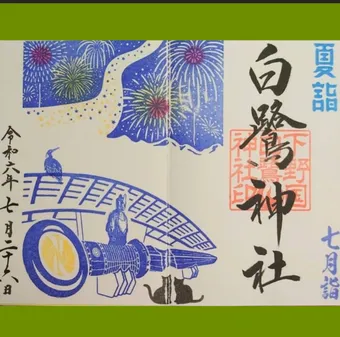 夏詣
白鷺神社
下野国
神社印
七月詣
令和六年七月二十六日